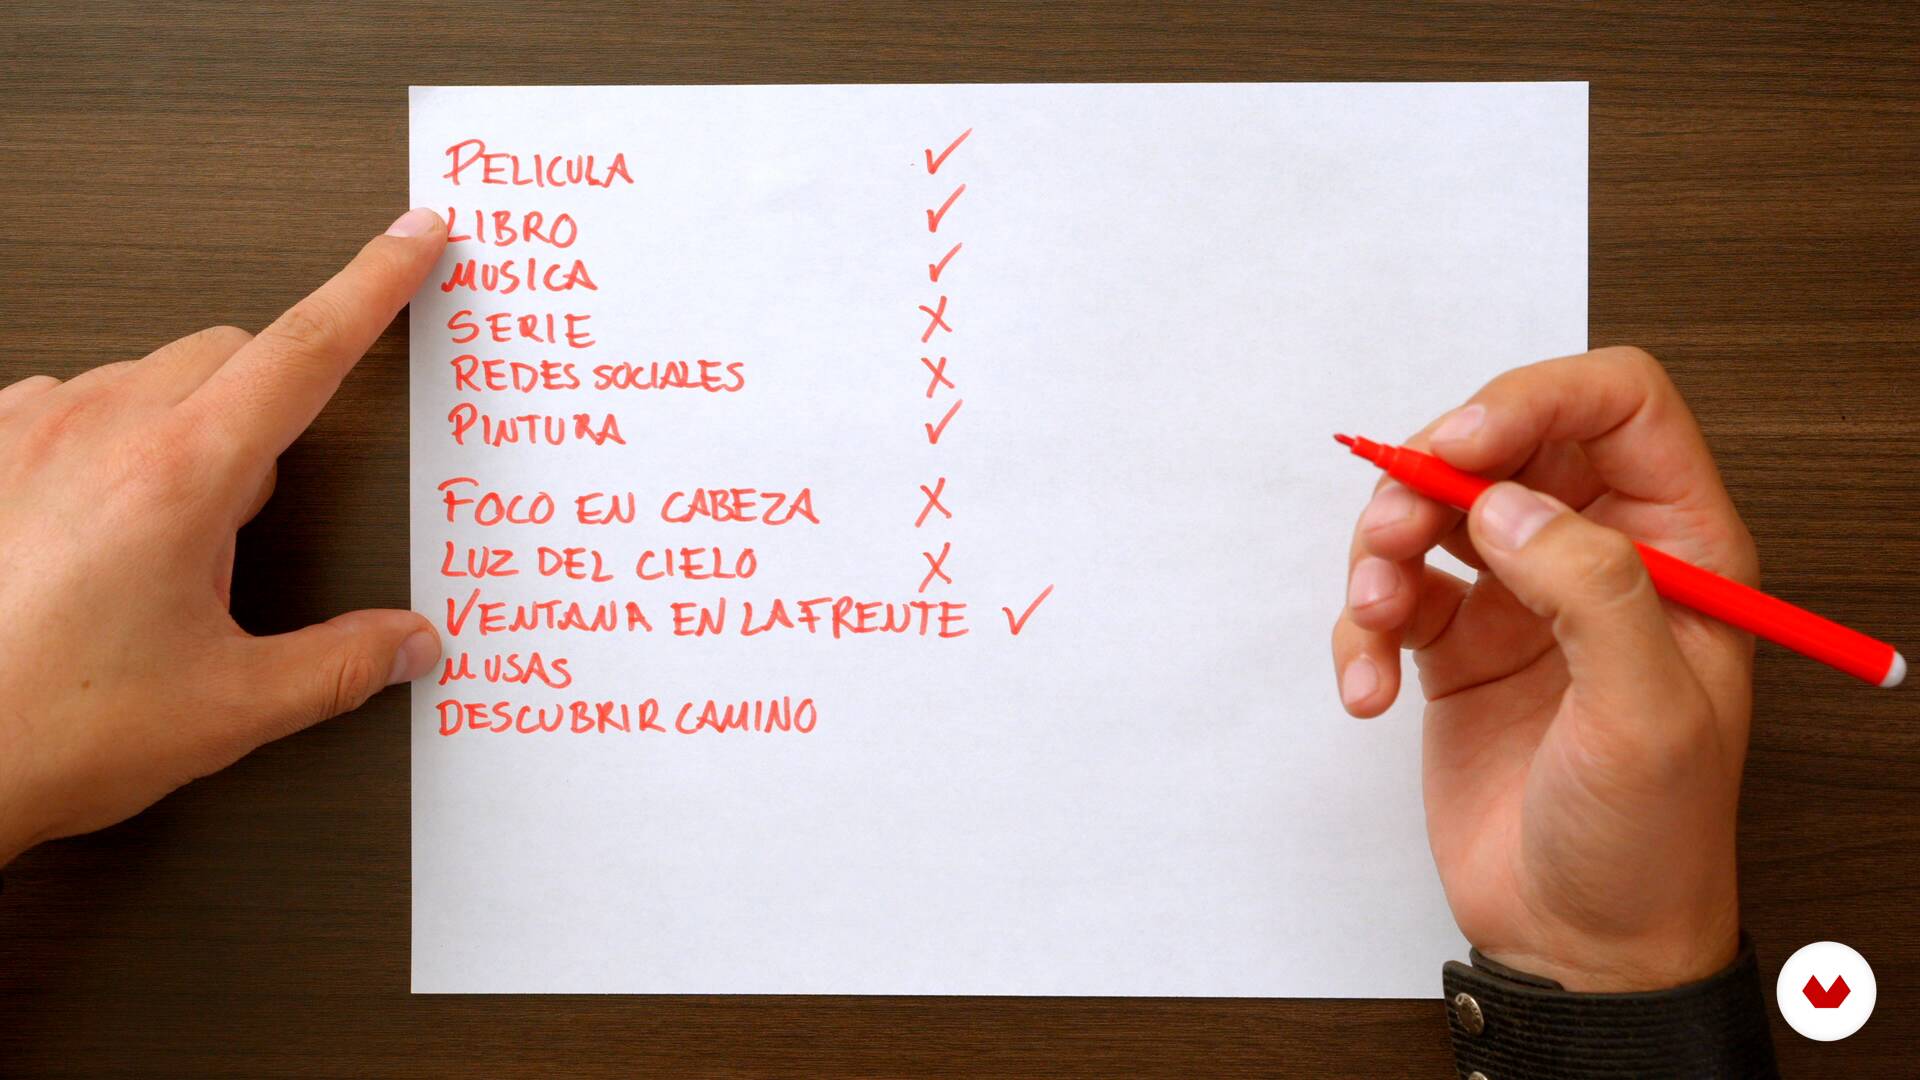 PELICULA ✓
LIBRO ✓
MUSICA ✓
SERIE X
REDES SOCIALES X
PINTURA ✓
FOCO EN CABEZA X
LUZ DEL CIELO X
VENTANA EN LA FRENTE ✓
MUSAS
DESCUBRIR CAMINO